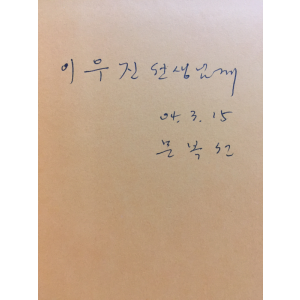 이우진 선생님께
04. 3. 15
문복선